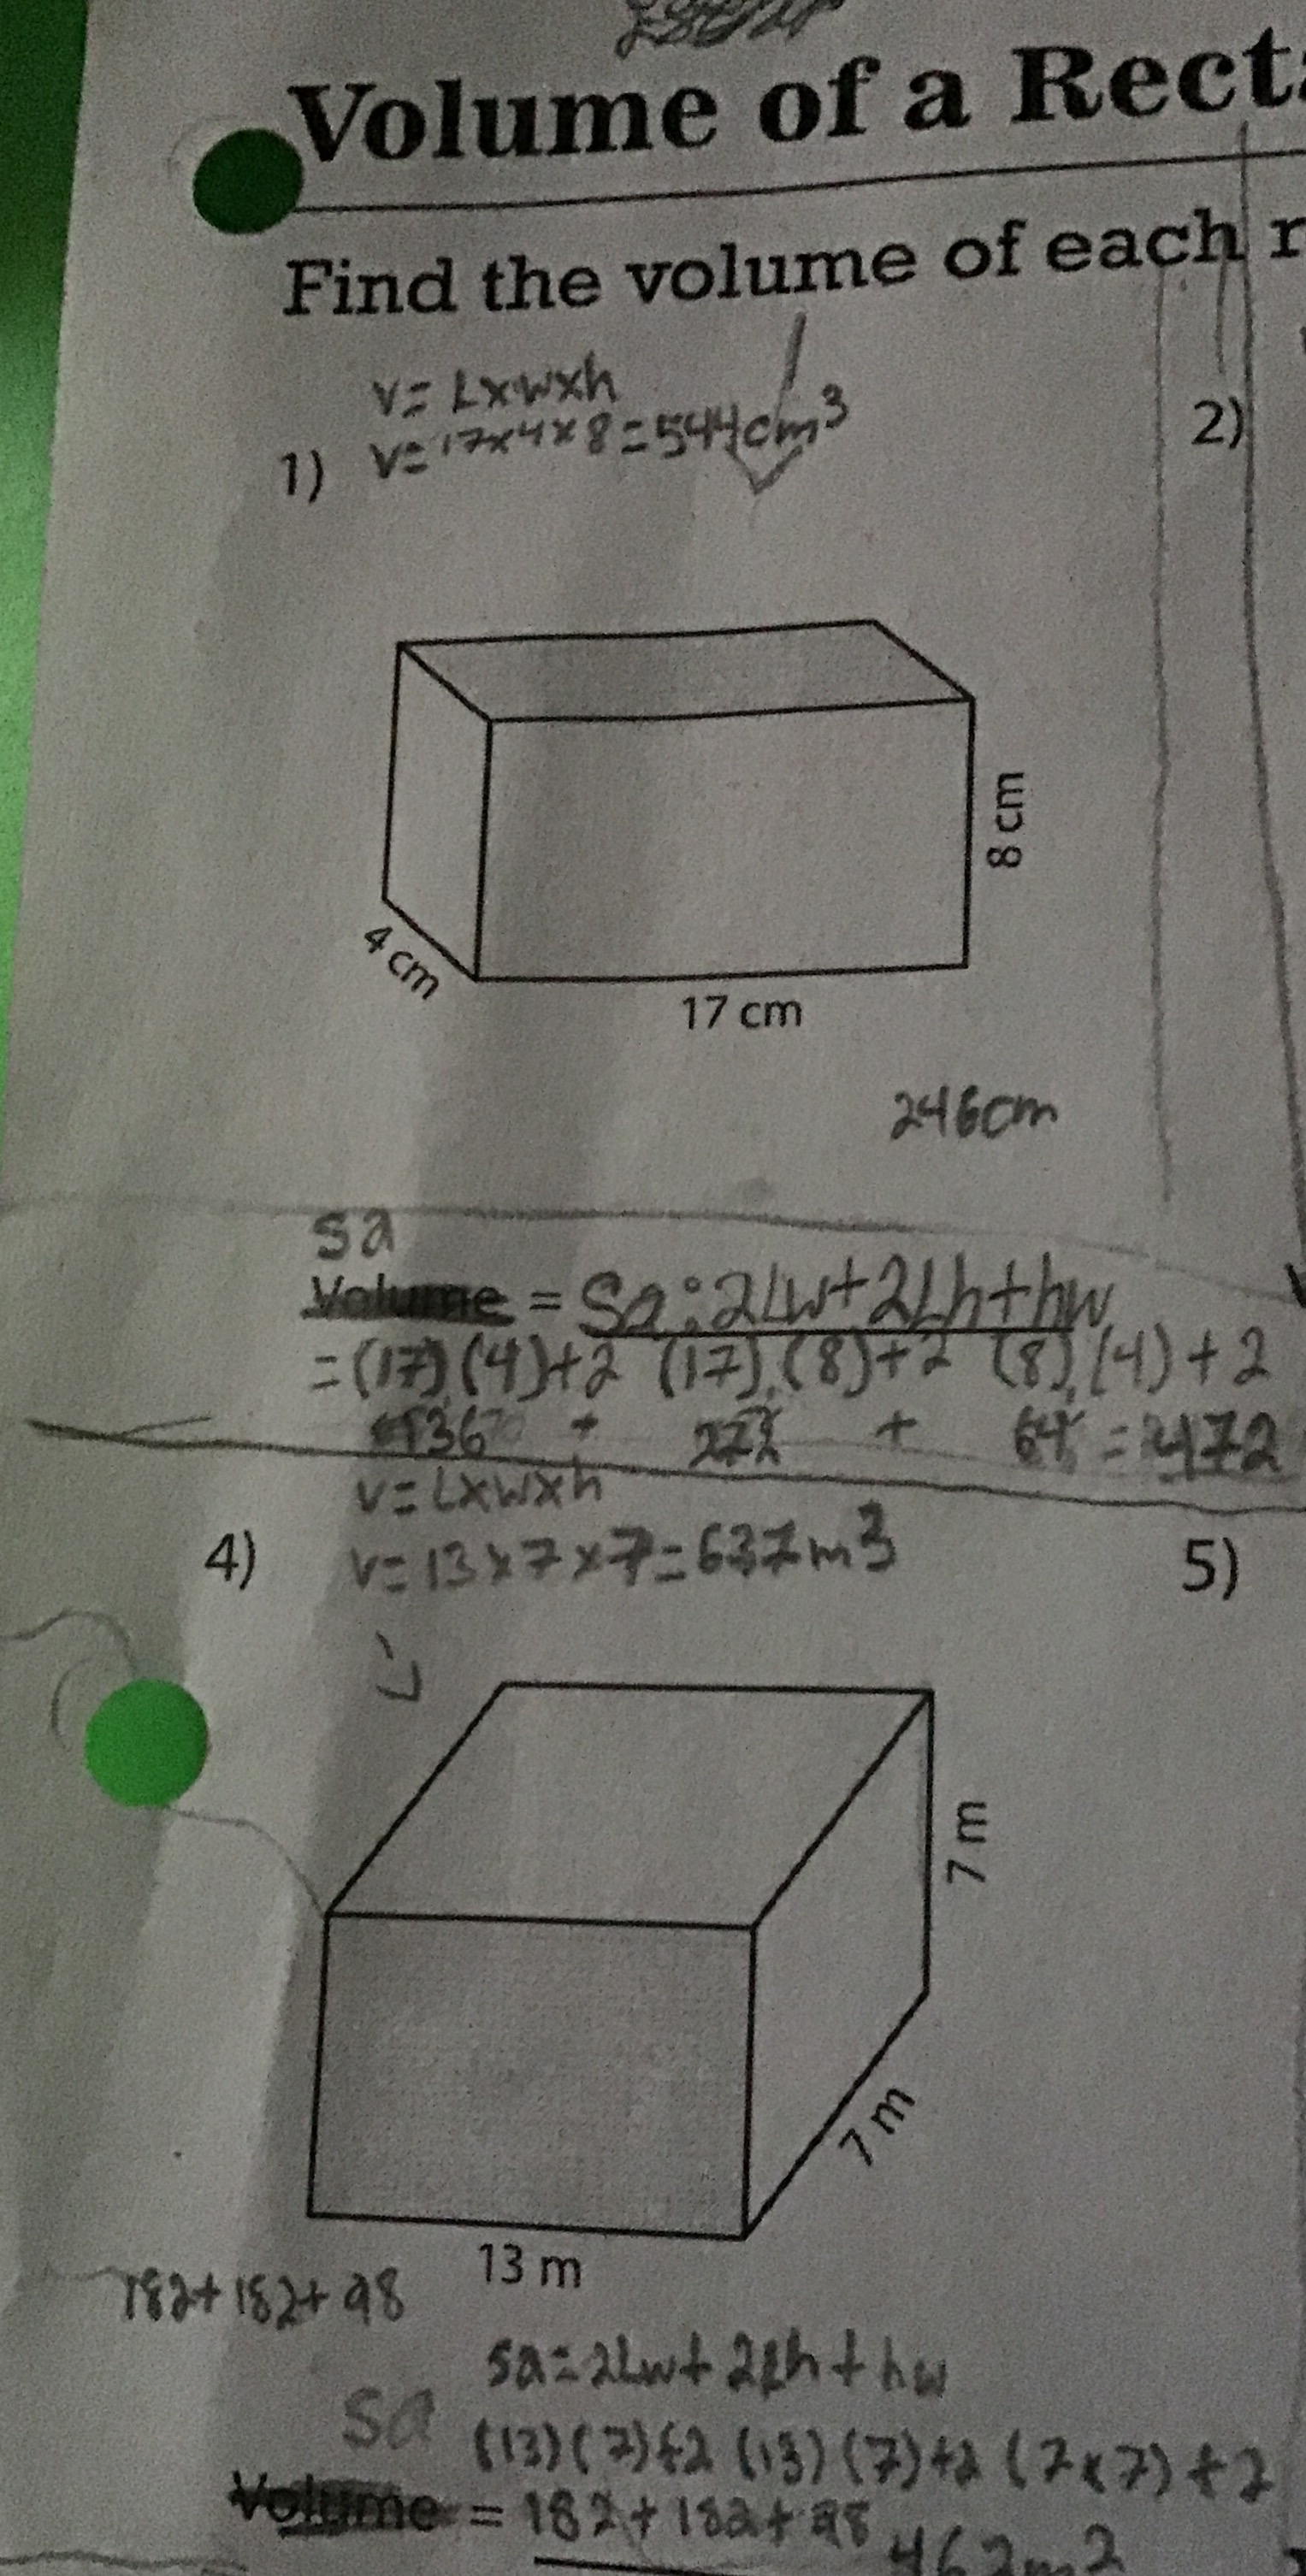 Volume of a Rect
Find the volume of each r
V= LxWxh
1) V= 17x4x8=544cm³
2)
8 cm
4 cm
17 cm
246cm
sa
Volume = Sa:2Lw+2Lh+hw
=(17)(4)+2 (17)(8)+2 (8)(4)+2
136 + 272 + 64 = 472
V= LxWxh
4) V= 13x7x7=637m3
5)
7 m
7 m
13 m
182+182+98
sa=2Lw+2Lh+hw
Sa (13)(7)+2 (13)(7)+2 (7x7)+2
Volume = 182+182+98 462m2